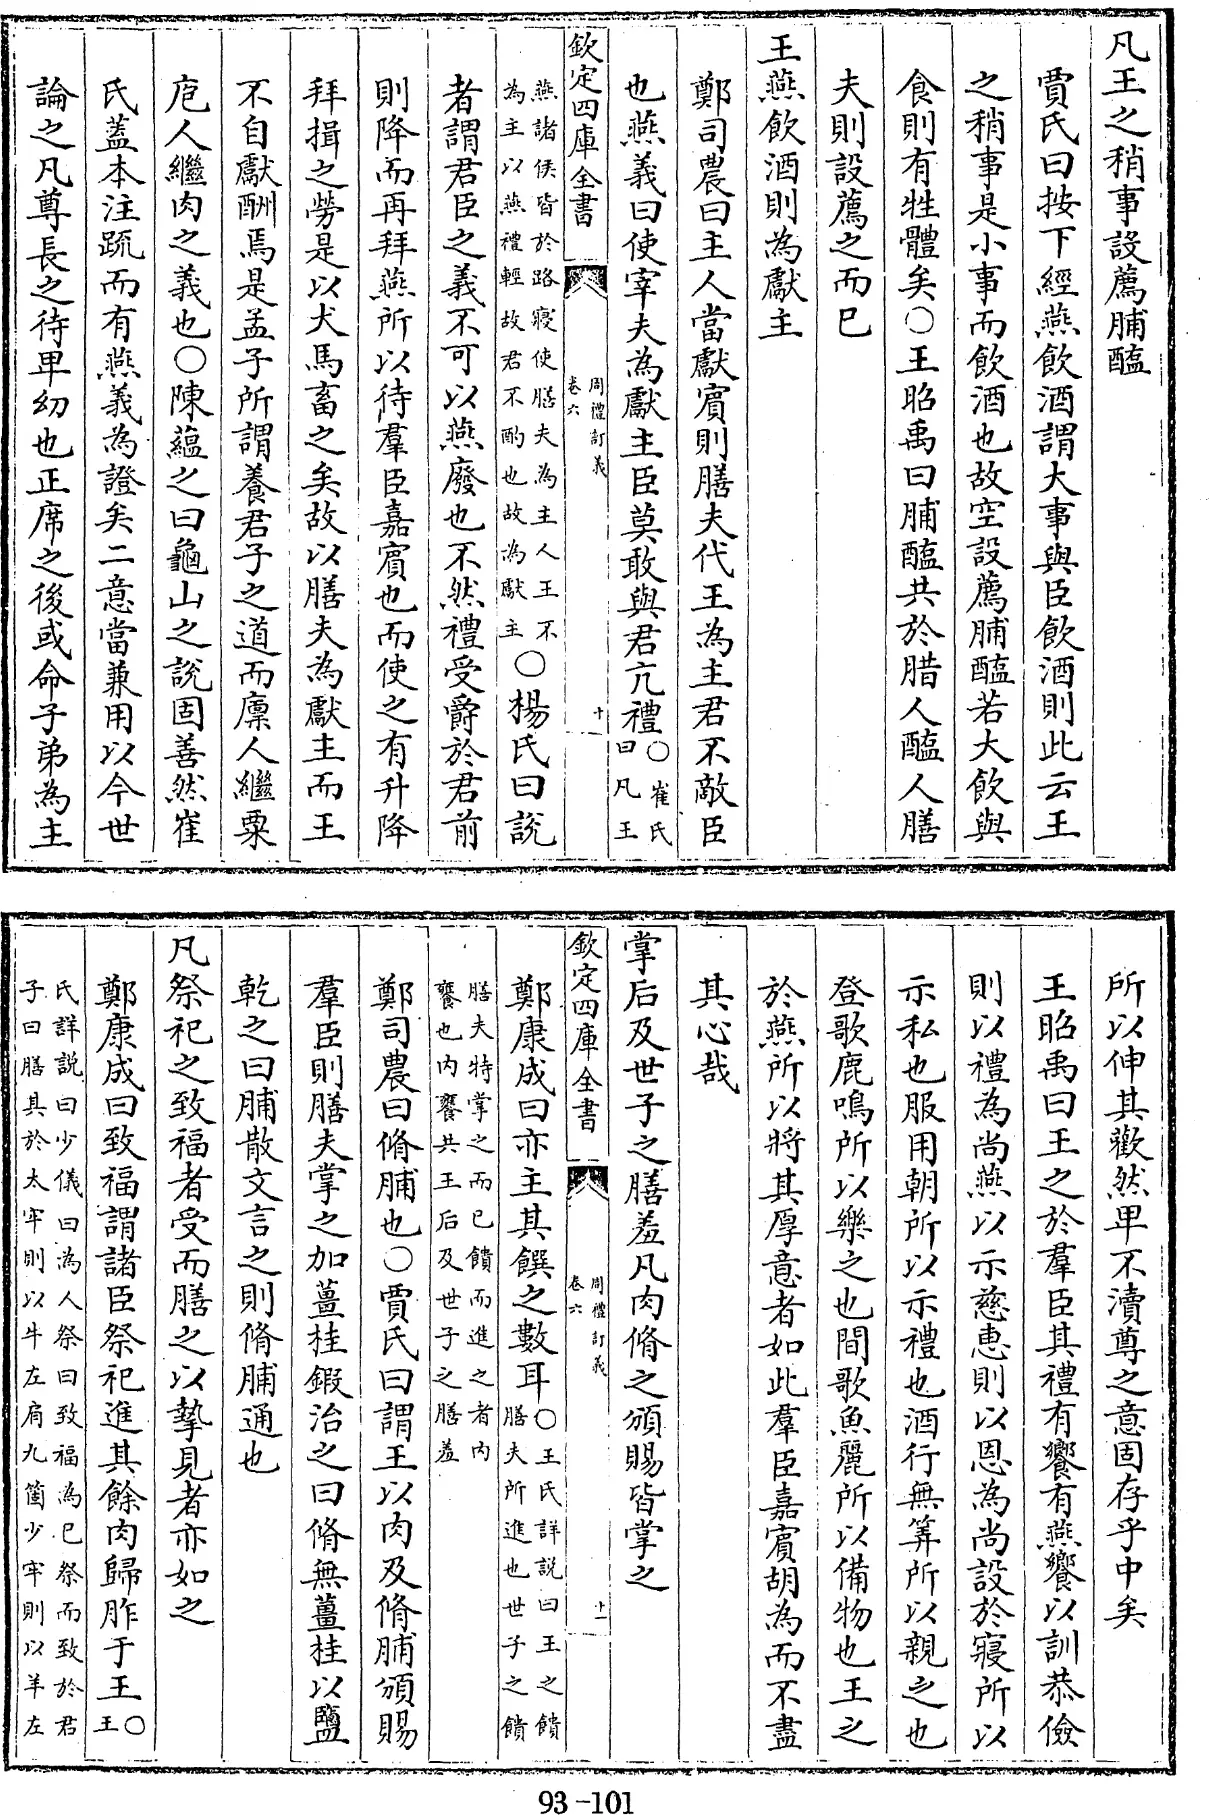 凡王之稍事設薦脯醢
賈氏曰按下經燕飲酒謂大事與臣飲酒則此云王
之稍事是小事而飲酒也故空設薦脯醢若大飲與
食則有牲體矣○王昭禹曰脯醢共於腊人醢人膳
夫則設薦之而已
王燕飲酒則為獻主
鄭司農曰主人當獻賓則膳夫代王為主君不敵臣
也燕義曰使宰夫為獻主臣莫敢與君亢禮○崔氏
曰凡王
欽定四庫全書
周禮訂義
卷六
十
燕諸侯皆於路寢使膳夫為主人王不
為主以燕禮輕故君不酌也故為獻主○楊氏曰說
者謂君臣之義不可以燕廢也不然禮受爵於君前
則降而再拜燕所以待羣臣嘉賓也而使之有升降
拜揖之勞是以犬馬畜之矣故以膳夫為獻主而王
不自獻酬焉是孟子所謂養君子之道而廩人繼粟
庖人繼肉之義也○陳蘊之曰龜山之說固善然崔
氏蓋本注疏而有燕義為證矣二意當兼用以今世
論之凡尊長之待卑幼也正席之後或命子弟為主
所以伸其歡然卑不瀆尊之意固存乎中矣
王昭禹曰王之於羣臣其禮有饗有燕饗以訓恭儉
則以禮為尚燕以示慈惠則以恩為尚設於寢所以
示私也服用朝所以示禮也酒行無筭所以親之也
登歌鹿鳴所以樂之也間歌魚麗所以備物也王之
於燕所以將其厚意者如此羣臣嘉賓胡為而不盡
其心哉
掌后及世子之膳羞凡肉脩之頒賜皆掌之
欽定四庫全書
周禮訂義
卷六
十一
鄭康成曰亦主其饌之數耳○王氏詳說曰王之饋
膳夫所進也世子之饋
膳夫特掌之而已饋而進之者內
饔也內饔共王后及世子之膳羞
鄭司農曰脩脯也○賈氏曰謂王以肉及脩脯頒賜
羣臣則膳夫掌之加薑桂鍛治之曰脩無薑桂以鹽
乾之曰脯散文言之則脩脯通也
凡祭祀之致福者受而膳之以摯見者亦如之
鄭康成曰致福謂諸臣祭祀進其餘肉歸胙于王○
王
氏詳說曰少儀曰為人祭曰致福為已祭而致於君
子曰膳其於太牢則以牛左肩九箇少牢則以羊左
93-101